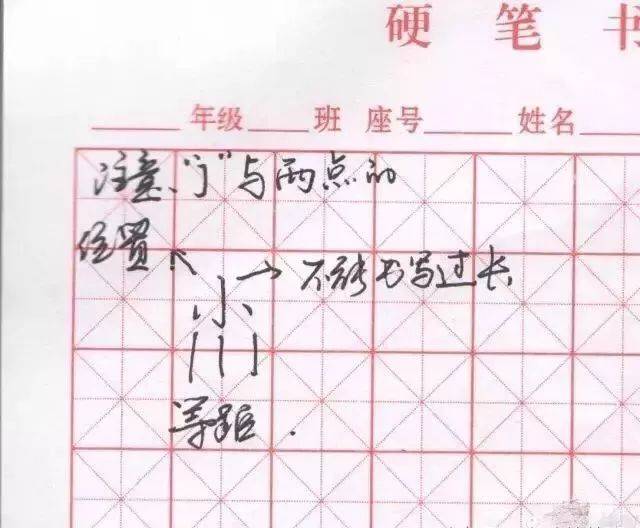 硬笔书
年级 班 座号 姓名
注意、“亅”与两点的
位置
不能书写过长
小
等距.